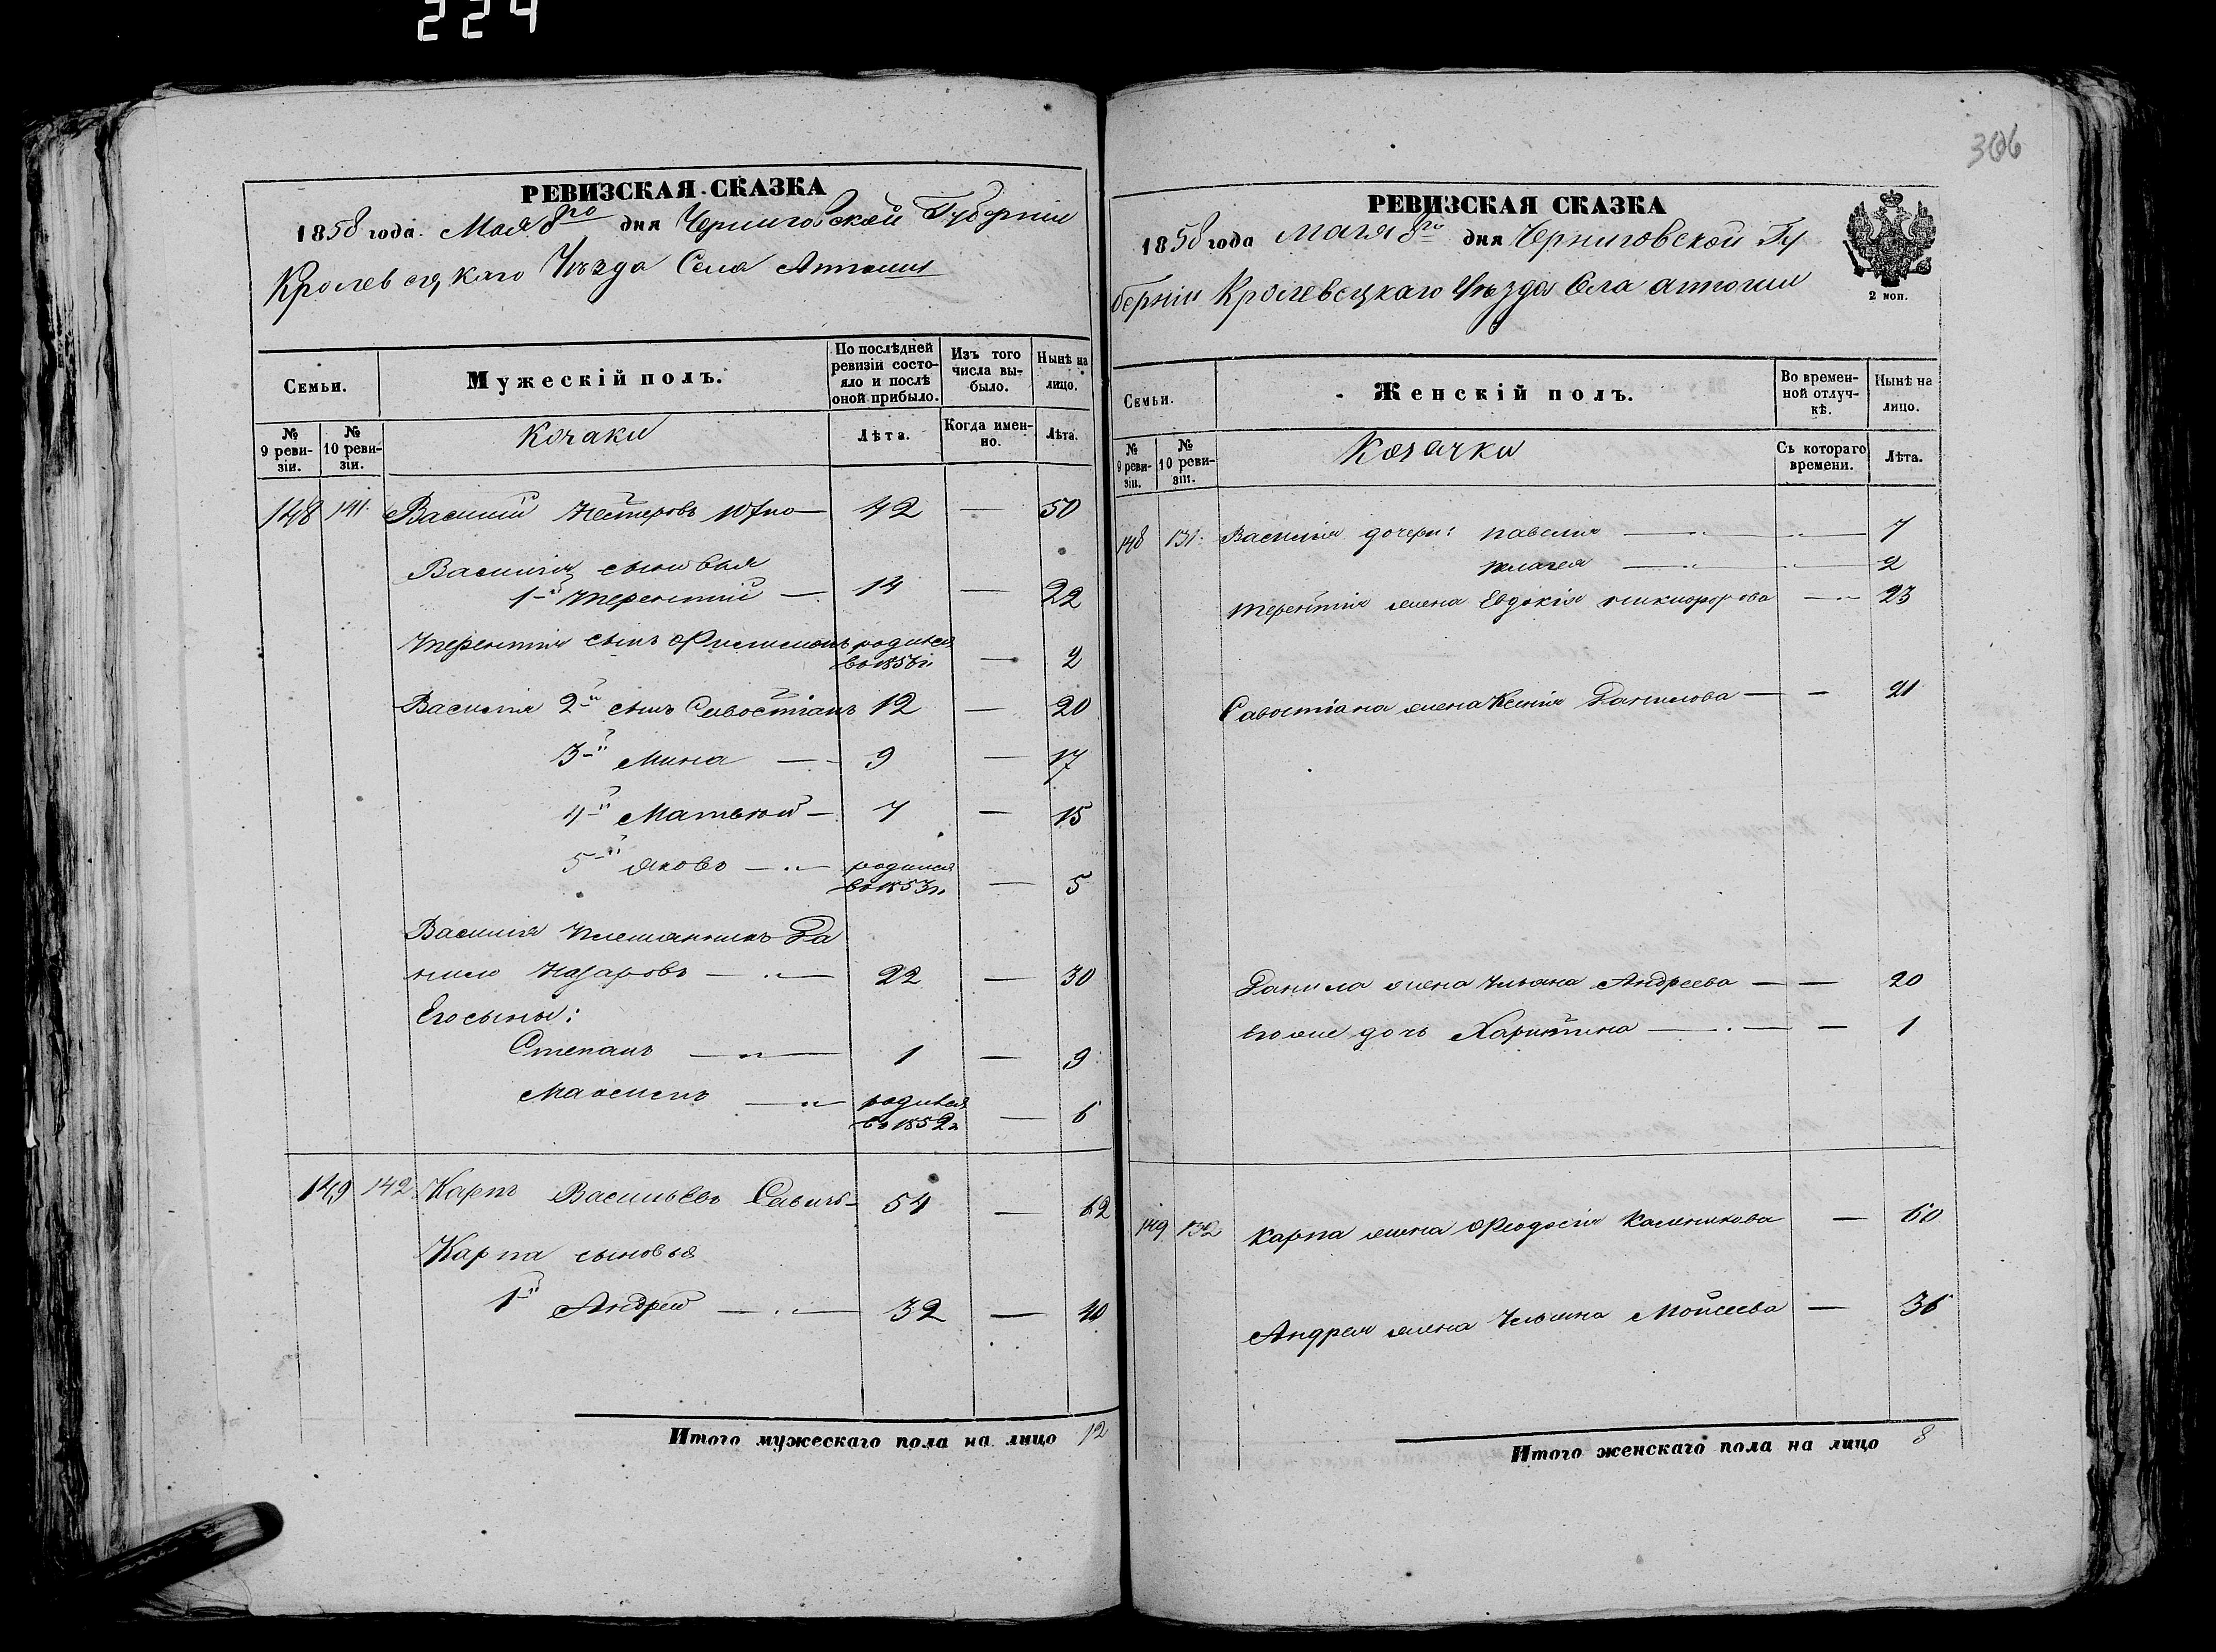 224
РЕВИЗСКАЯ СКАЗКА
1858 года Мая 8го дня Черниговской Губерніи
Кролевецкаго Уѣзда Села
Семьи.
Мужескій полъ.
По послѣдней ревизіи состояло и послѣ оной прибыло.
Изъ того числа выбыло.
Нынѣ на лицо.
№ 9 ревизіи.
№ 10 ревизіи.
Козаки
Лѣта.
Когда именно.
Лѣта.
148 141. Василій Нестеровъ — 42 — 50
Василія сыновья
1й Терентій — 14 — 22
Терентія сынъ Филимонъ родился
въ 1856г. — 2
Василія 2й сынъ Савостіанъ 12 — 20
3й Мина — 9 — 17
4й Матвей — 7 — 15
5й Яковъ — родился
въ 1853г. — 5
Василія племянникъ Да
нило Назаровъ — 22 — 30
Его сыны:
Степанъ — 1 — 9
Максимъ — родился
въ 1852г — 6
149 142 Карпъ Васильевъ Савичъ — 54 — 62
Карпа сыновья
1й Андрей — 32 — 40
Итого мужескаго пола на лицо 12
306
РЕВИЗСКАЯ СКАЗКА
1858 года Мая 8го дня Черниговской Гу
берніи Кролевецкаго Уѣзда Села
2 коп.
Семьи.
Женскій полъ.
Во временной отлучкѣ.
Нынѣ на лицо.
№ 9 ревизіи.
№ 10 ревизіи.
Козачки
Съ котораго времени.
Лѣта.
148 131. Василія дочери: — 7
Пелагея — 2
Терентія жена Евдокія Никифорова — 23
Савостіана жена Ксенія Данилова — — 21
Данила жена Ульяна Андреева — — 20
его же дочь Харитина — — 1
149 132 Карпа жена Феодосія — 60
Андрея жена Ульяна Моисеева — 36
Итого женскаго пола на лицо 8